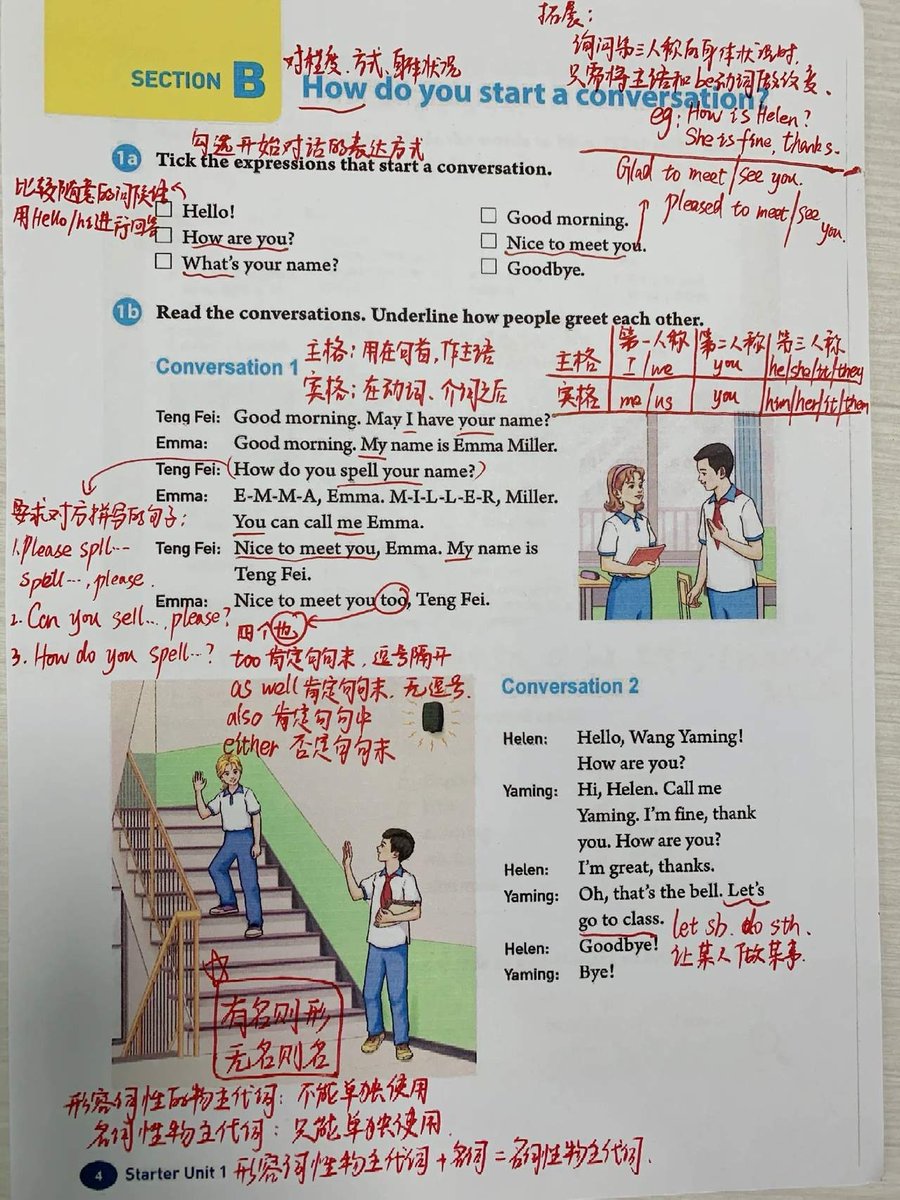 拓展：
询问第三人称的身体状况时，
只需将主语和be动词做改变、
eg：How is Helen?
She is fine, thanks.
SECTION B
对程度、方式、身体状况
How do you start a conversation?
勾选开始对话的表达方式
1a Tick the expressions that start a conversation.
Glad to meet/see you.
pleased to meet/see
you.
比较随意的问候语
用Hello/hi进行回答
Hello!
How are you?
What's your name?
Good morning.
Nice to meet you.
Goodbye.
1b Read the conversations. Underline how people greet each other.
主格：用在句首，作主语
宾格：在动词、介词之后
第一人称 第二人称 第三人称
主格 I/we you he/she/it/they
宾格 me/us you him/her/it/them
Conversation 1
Teng Fei: Good morning. May I have your name?
Emma: Good morning. My name is Emma Miller.
Teng Fei: (How do you spell your name?)
Emma: E-M-M-A, Emma. M-I-L-L-E-R, Miller.
You can call me Emma.
Teng Fei: Nice to meet you, Emma. My name is
Teng Fei.
Emma: Nice to meet you too, Teng Fei.
要求对方拼写的句子：
1.Please spll…
spell…,please.
2.Can you sell…,please?
3.How do you spell…?
四个也
too 肯定句句末，逗号隔开
as well 肯定句句末，无逗号
also 肯定句句中
either 否定句句末
Conversation 2
Helen: Hello, Wang Yaming!
How are you?
Yaming: Hi, Helen. Call me
Yaming. I'm fine, thank
you. How are you?
Helen: I'm great, thanks.
Yaming: Oh, that's the bell. Let's
go to class.
Helen: Goodbye!
Yaming: Bye!
let sb. do sth.
让某人做某事
有名则形
无名则名
形容词性的物主代词：不能单独使用
名词性物主代词：只能单独使用
4 Starter Unit 1
形容词性物主代词+名词=名词性物主代词.